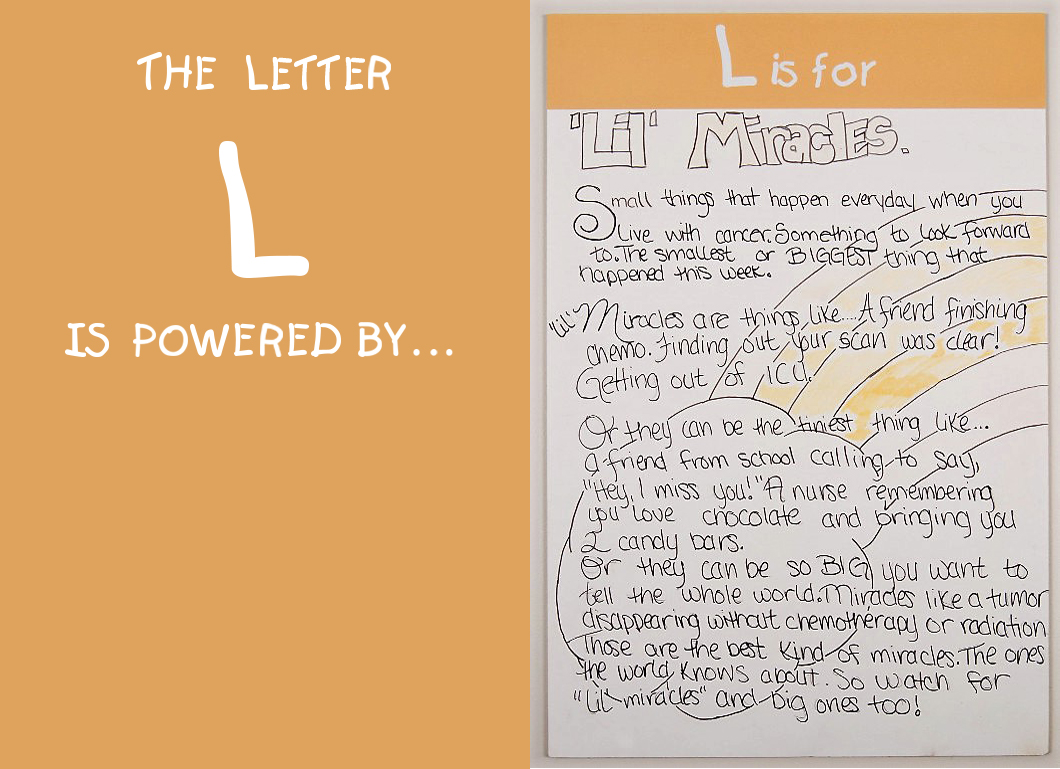 THE LETTER
L
IS POWERED BY...
L is for
'Lil' Miracles.
Small things that happen everyday when you
Live with cancer. Something to look forward
to. The smallest or BIGGEST thing that
happened this week.
"Lil" Miracles are things like.... A friend finishing
chemo. Finding out your scan was clear!
Getting out of ICU.
Or they can be the tiniest thing like...
a friend from school calling to say,
"Hey, I miss you!" A nurse remembering
you love chocolate and bringing you
2 candy bars.
Or they can be so BIG you want to
tell the whole world. Miracles like a tumor
disappearing without chemotherapy or radiation
Those are the best kind of miracles. The ones
the world knows about. So watch for
"Lil miracles" and big ones too!